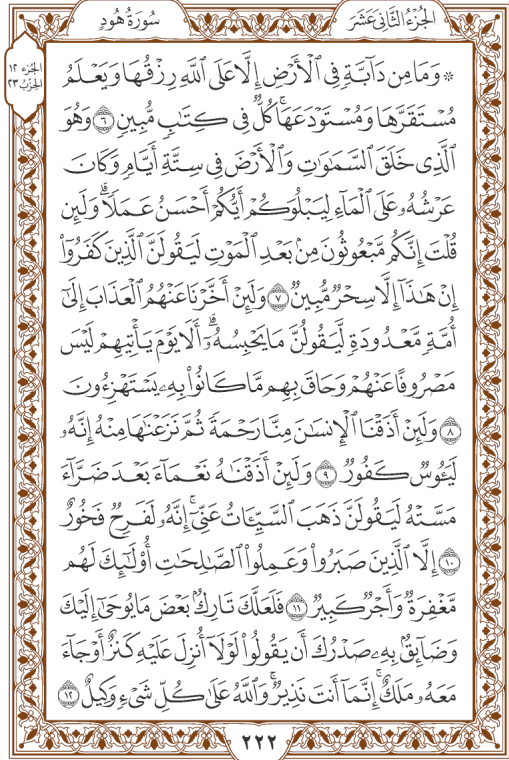 الجُزْءُ الثَّانِيَ عَشَرَ
سُورَةُ هُودٍ
الجزء ١٢
الحزب ٢٣
۞ وَمَا مِن دَآبَّةٖ فِي ٱلۡأَرۡضِ إِلَّا عَلَى ٱللَّهِ رِزۡقُهَا وَيَعۡلَمُ
مُسۡتَقَرَّهَا وَمُسۡتَوۡدَعَهَاۚ كُلّٞ فِي كِتَٰبٖ مُّبِينٖ ٦ وَهُوَ
ٱلَّذِي خَلَقَ ٱلسَّمَٰوَٰتِ وَٱلۡأَرۡضَ فِي سِتَّةِ أَيَّامٖ وَكَانَ
عَرۡشُهُۥ عَلَى ٱلۡمَآءِ لِيَبۡلُوَكُمۡ أَيُّكُمۡ أَحۡسَنُ عَمَلٗاۗ وَلَئِن
قُلۡتَ إِنَّكُم مَّبۡعُوثُونَ مِنۢ بَعۡدِ ٱلۡمَوۡتِ لَيَقُولَنَّ ٱلَّذِينَ كَفَرُوٓاْ
إِنۡ هَٰذَآ إِلَّا سِحۡرٞ مُّبِينٞ ٧ وَلَئِنۡ أَخَّرۡنَا عَنۡهُمُ ٱلۡعَذَابَ إِلَىٰٓ
أُمَّةٖ مَّعۡدُودَةٖ لَّيَقُولُنَّ مَا يَحۡبِسُهُۥٓۗ أَلَا يَوۡمَ يَأۡتِيهِمۡ لَيۡسَ
مَصۡرُوفًا عَنۡهُمۡ وَحَاقَ بِهِم مَّا كَانُواْ بِهِۦ يَسۡتَهۡزِءُونَ
٨ وَلَئِنۡ أَذَقۡنَا ٱلۡإِنسَٰنَ مِنَّا رَحۡمَةٗ ثُمَّ نَزَعۡنَٰهَا مِنۡهُ إِنَّهُۥ
لَيَـُٔوسٞ كَفُورٞ ٩ وَلَئِنۡ أَذَقۡنَٰهُ نَعۡمَآءَ بَعۡدَ ضَرَّآءَ
مَسَّتۡهُ لَيَقُولَنَّ ذَهَبَ ٱلسَّيِّـَٔاتُ عَنِّيٓۚ إِنَّهُۥ لَفَرِحٞ فَخُورٌ
١٠ إِلَّا ٱلَّذِينَ صَبَرُواْ وَعَمِلُواْ ٱلصَّٰلِحَٰتِ أُوْلَٰٓئِكَ لَهُم
مَّغۡفِرَةٞ وَأَجۡرٞ كَبِيرٞ ١١ فَلَعَلَّكَ تَارِكُۢ بَعۡضَ مَا يُوحَىٰٓ إِلَيۡكَ
وَضَآئِقُۢ بِهِۦ صَدۡرُكَ أَن يَقُولُواْ لَوۡلَآ أُنزِلَ عَلَيۡهِ كَنزٌ أَوۡ جَآءَ
مَعَهُۥ مَلَكٌۚ إِنَّمَآ أَنتَ نَذِيرٞۚ وَٱللَّهُ عَلَىٰ كُلِّ شَيۡءٖ وَكِيلٌ ١٢
٢٢٢